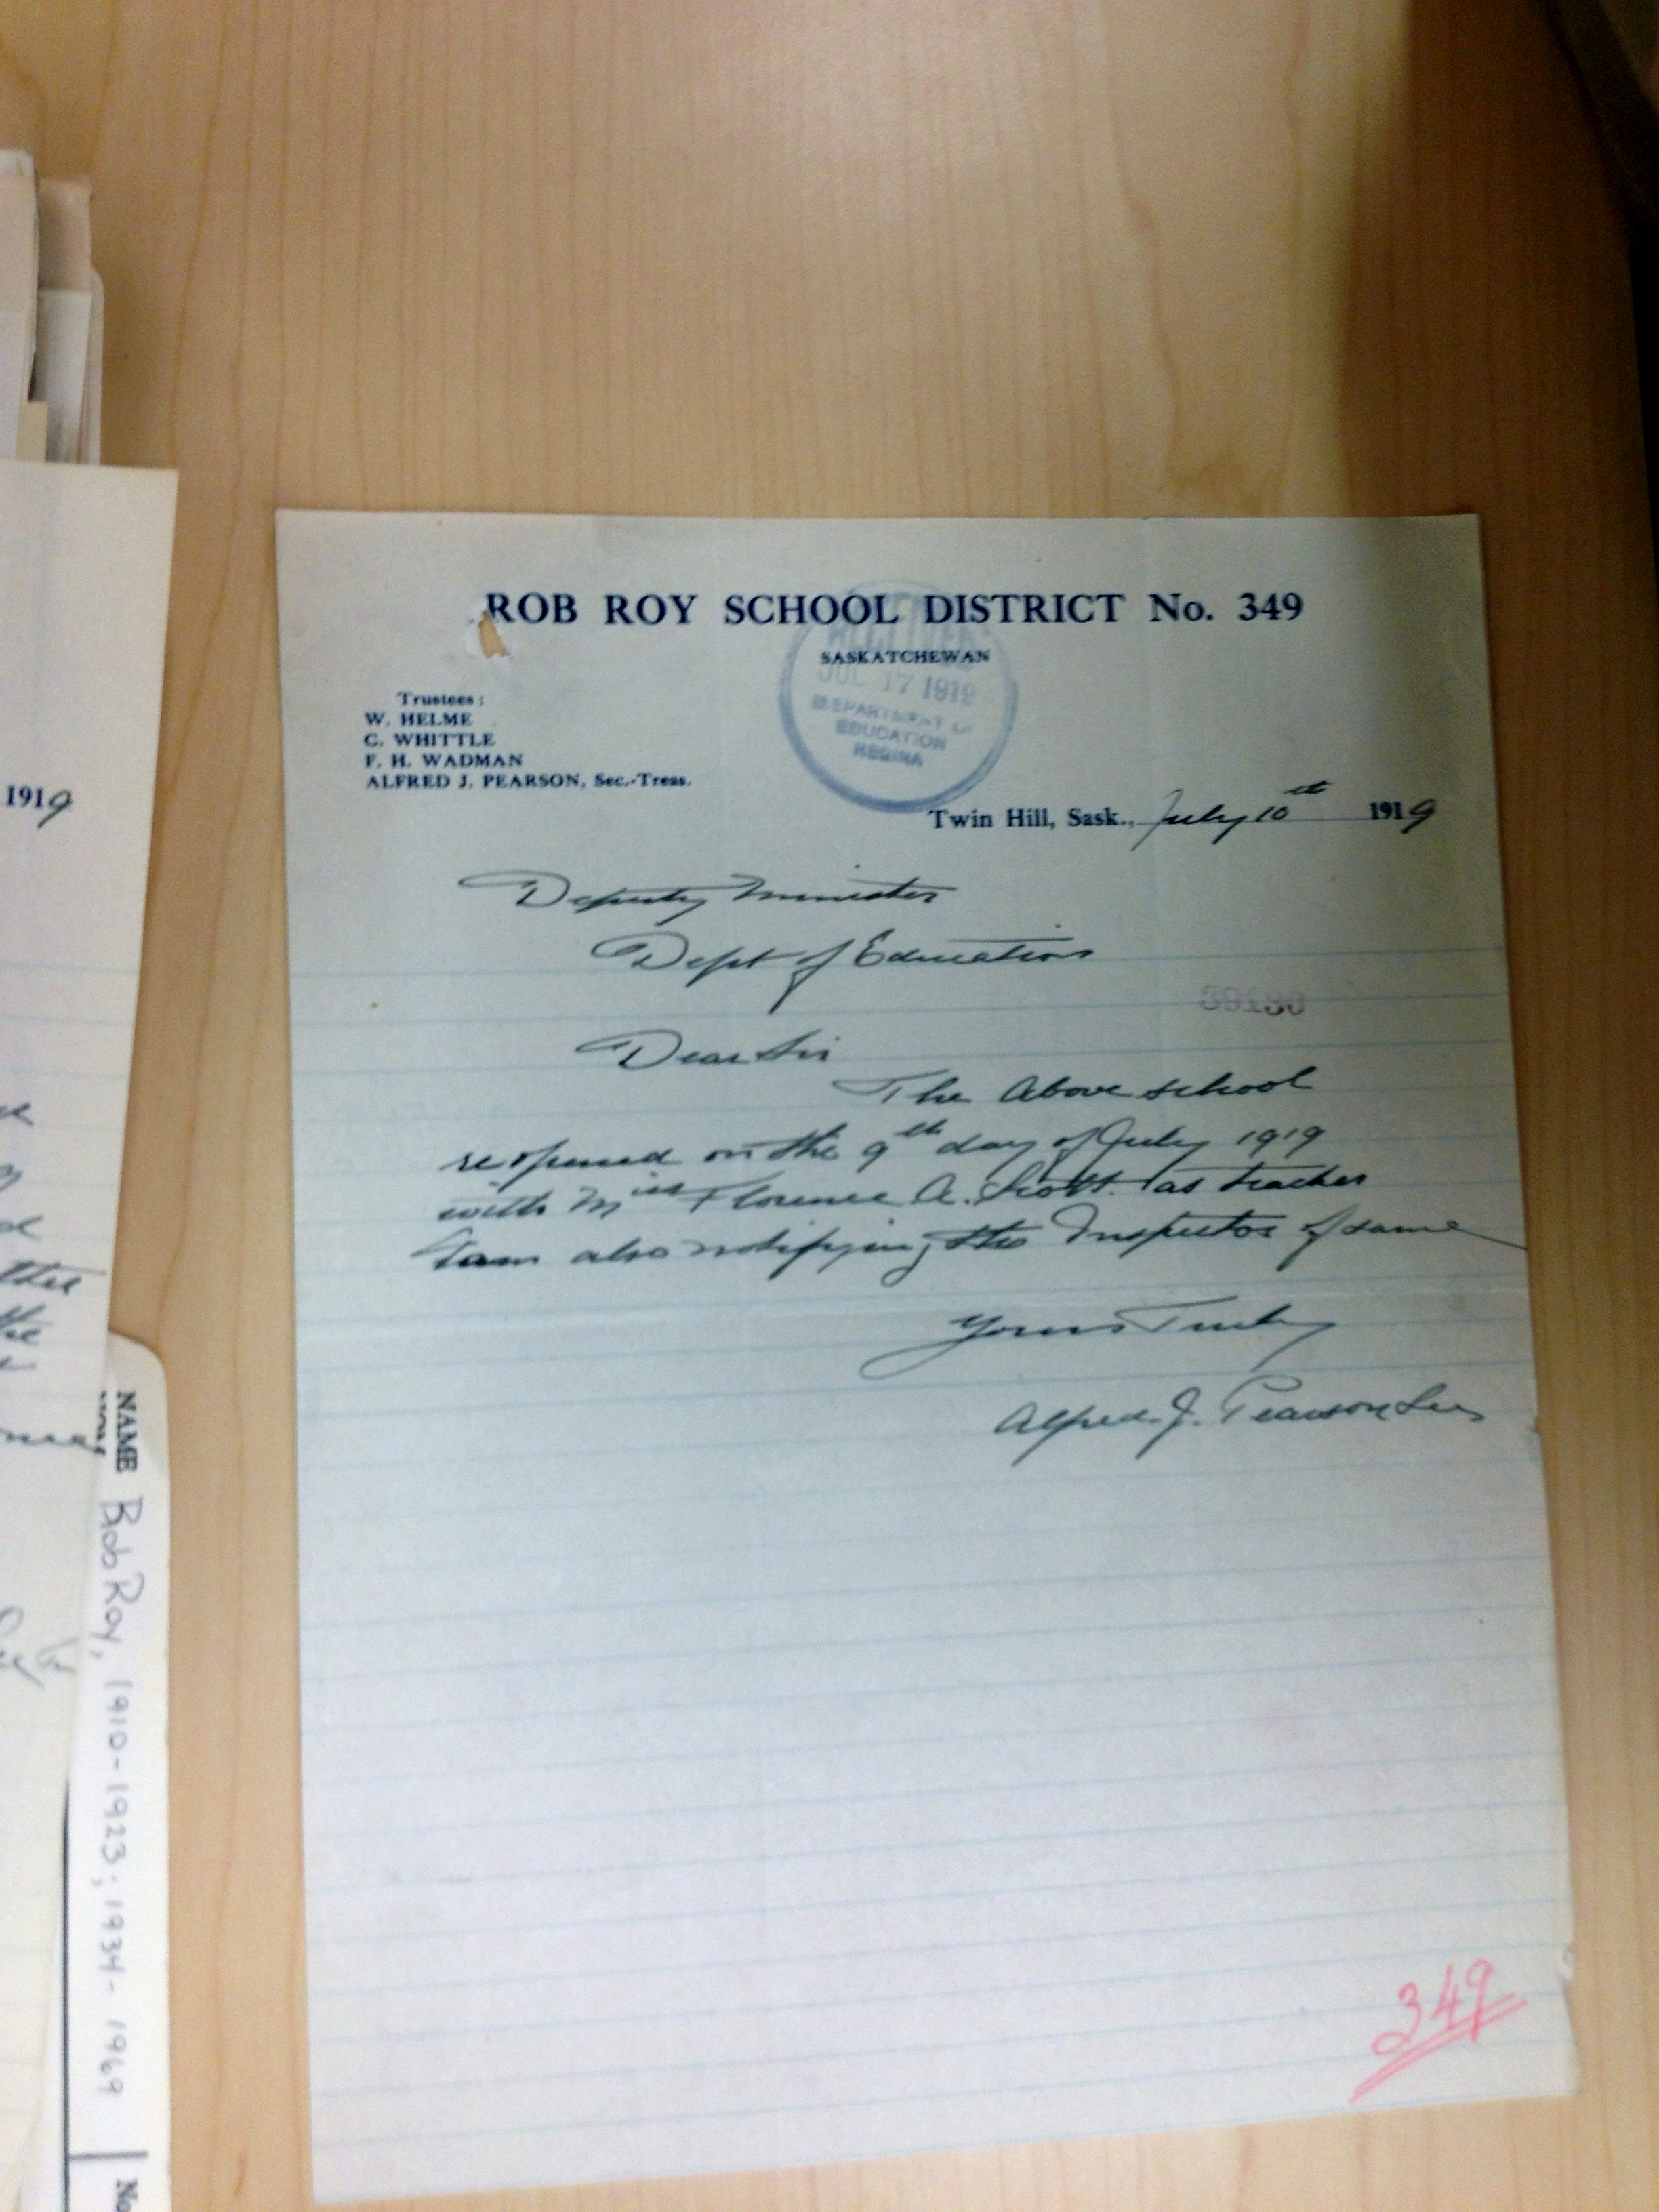 ROB ROY SCHOOL DISTRICT No. 349
SASKATCHEWAN
JUL 17 1919
DEPARTMENT OF
EDUCATION
REGINA
Trustees:
W. HELME
C. WHITTLE
F. H. WADMAN
ALFRED J. PEARSON, Sec.-Treas.
Twin Hill, Sask., July 10th 1919
Deputy Minister
Dept of Education
39130
Dear Sir
The Above school
reopened on the 9th day of July 1919
with Miss Florence A. Scott. as teacher
I am also notifying the Inspector of same
Yours Truly
Alfred J. Pearson Sec
349
1919
the
NAME Rob Roy, 1910-1923; 1934-1969
No